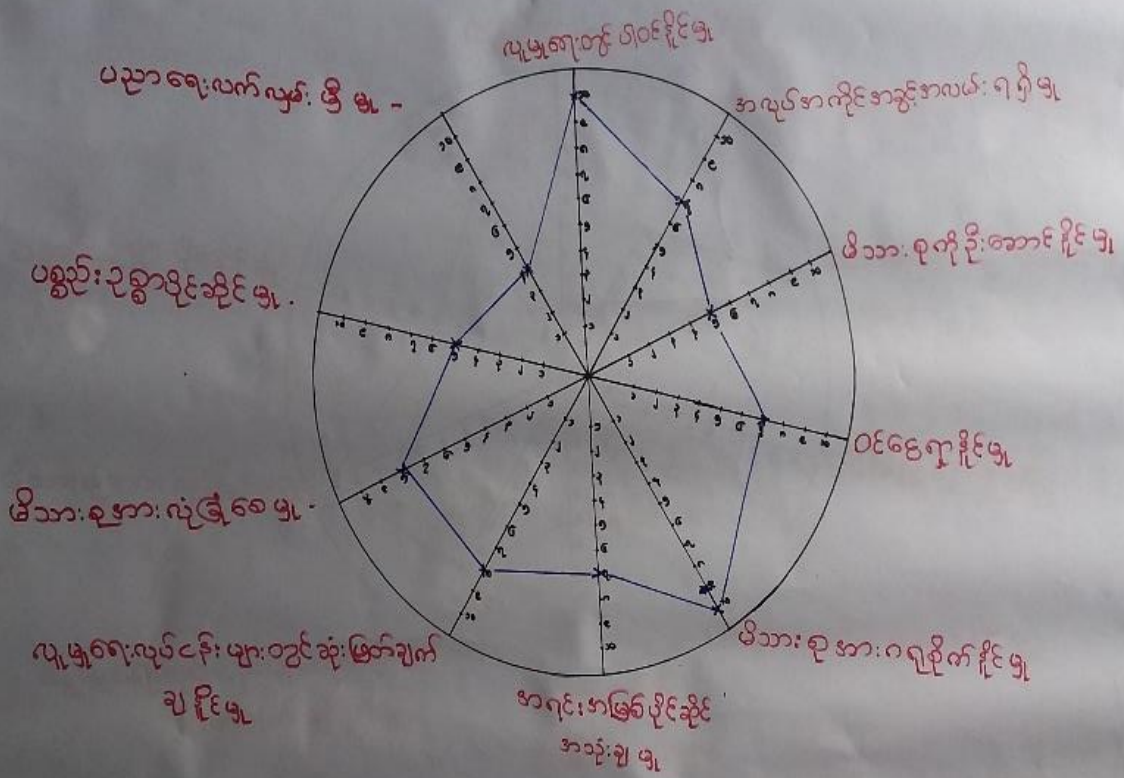 လူမှုရေးတွင် ပါဝင်နိုင်မှု
အလုပ်အကိုင်အခွင့်အလမ်းရရှိမှု
မိသားစုကိုဦးဆောင်နိုင်မှု
ဝင်ငွေရှာနိုင်မှု
မိသားစုအားဂရုစိုက်နိုင်မှု
အရင်းအမြစ်ပိုင်ဆိုင်
အသုံးချမှု
လူမှုရေးလုပ်ငန်းများတွင်ဆုံးဖြတ်ချက်
ချနိုင်မှု
မိသားစုအားလုံခြုံစေမှု -
ပစ္စည်းဥစ္စာပိုင်ဆိုင်မှု -
ပညာရေးလက်လှမ်းမှီမှု -